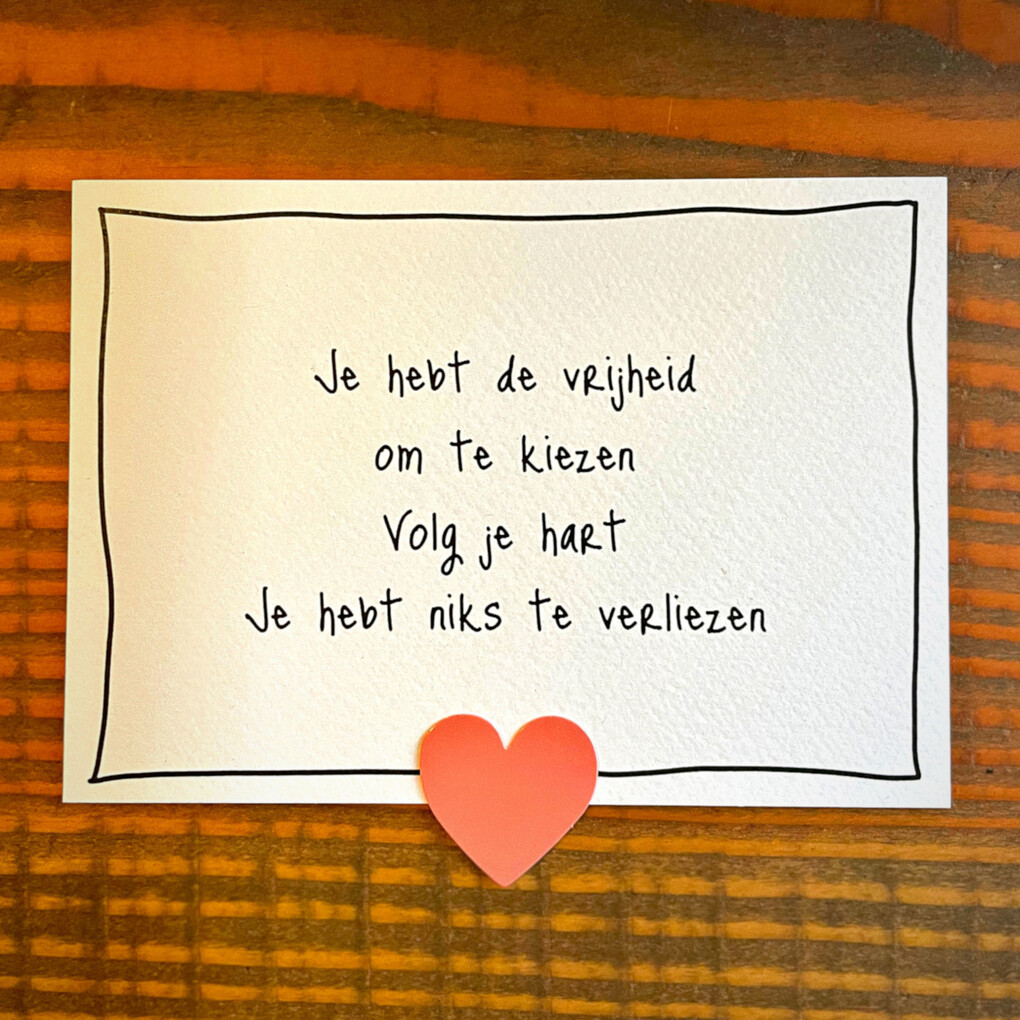 Je hebt de vrijheid
om te kiezen
Volg je hart
Je hebt niks te verliezen